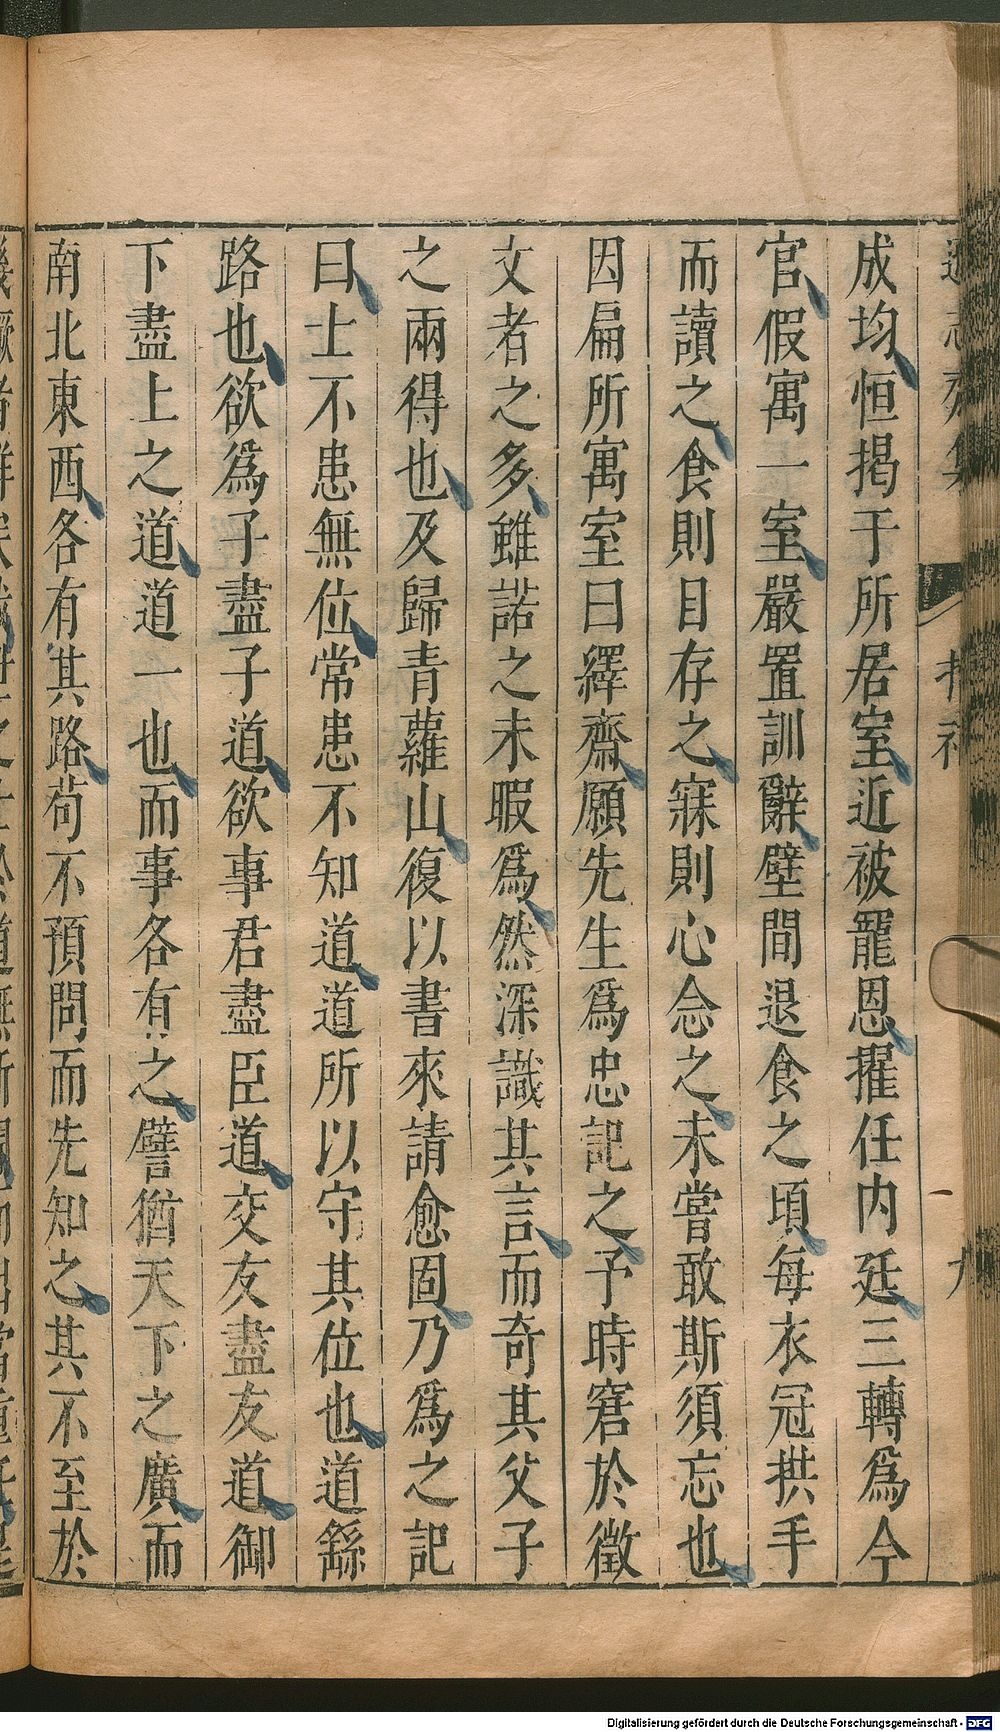 成均恒揭于所居室近被寵恩擢任内廷三轉爲今
官假寓一室嚴置訓辭壁間退食之頃每衣冠拱手
而讀之食則目存之寐則心念之未嘗敢斯須忘也
因扁所寓室曰繹齋願先生爲忠記之予時窘於徵
文者之多雖諾之未暇爲然深識其言而奇其父子
之兩得也及歸青蘿山復以書來請愈固乃爲之記
曰士不患無位常患不知道道所以守其位也道繇
路也欲爲子盡子道欲事君盡臣道交友盡友道御
下盡上之道道一也而事各有之譬猶天下之廣而
南北東西各有其路苟不預問而先知之其不至於
Digitalisierung gefördert durch die Deutsche Forschungsgemeinschaft - DFG